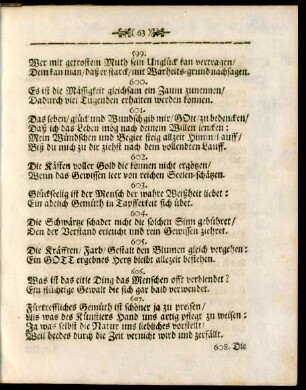 63
599.
Wer mit getrostem Muth sein Unglück kan vertragen/
Dem kan man/ daß er starck/ mit Warheits-grund nachsagen.
600.
Es ist die Mässigkeit gleichsam ein Zaum zunennen/
Dadurch viel Tugenden erhalten werden können.
601.
Das leben/ glück und Wundsch gib mir/ GOtt/ zu bedencken/
Daß ich das Leben mög nach deinem Willen lencken:
Mein Wündschen und Begier steig allzeit Himm'l auff/
Biß du mich zu dir ziehst nach dem vollendten Lauff.
602.
Die Kästen voller Gold die können nicht ergötzen/
Wenn das Gewissen leer von reichen Seelen-schätzen.
603.
Glückseelig ist der Mensch der wahre Weißheit liebet:
Ein adelich Gemüth in Tapfferkeit sich übet.
604.
Die Schwärtze schadet nicht die solchen Sinn gebühret/
Den der Verstand erleucht und rein Gewissen ziehret.
605.
Die Kräfften/ Farb/ Gestalt den Blumen gleich vergehen:
Ein GOTT ergebnes Hertz bleibt allezeit bestehen.
606.
Was ist das eitle Ding das Menschen offt verblendet?
Ein flüchtige Gewalt die sich gar bald verwendet.
607.
Fürtreffliches Gemüth ist schöner ja zu preisen/
Als was des Künstlers Hand uns artig pflegt zu weisen:
Ja was selbst die Natur uns liebliches vorstellt/
Weil beedes durch die Zeit vernicht wird und zerfällt.
608. Die